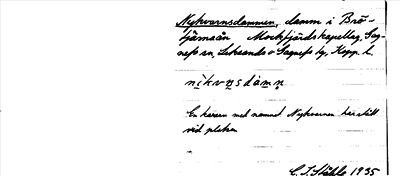 Nykvarnsdammen, damm i Brö-
tjärnaån Mockfjärds kapellag, Gag-
nefs sn, Leksands o Gagnefs tg, Kopp. l.
nikvṇsdamṇ
En kvarn med namnet Nykvarnen har stått
vid platsen
C. I. Ståhle 1935